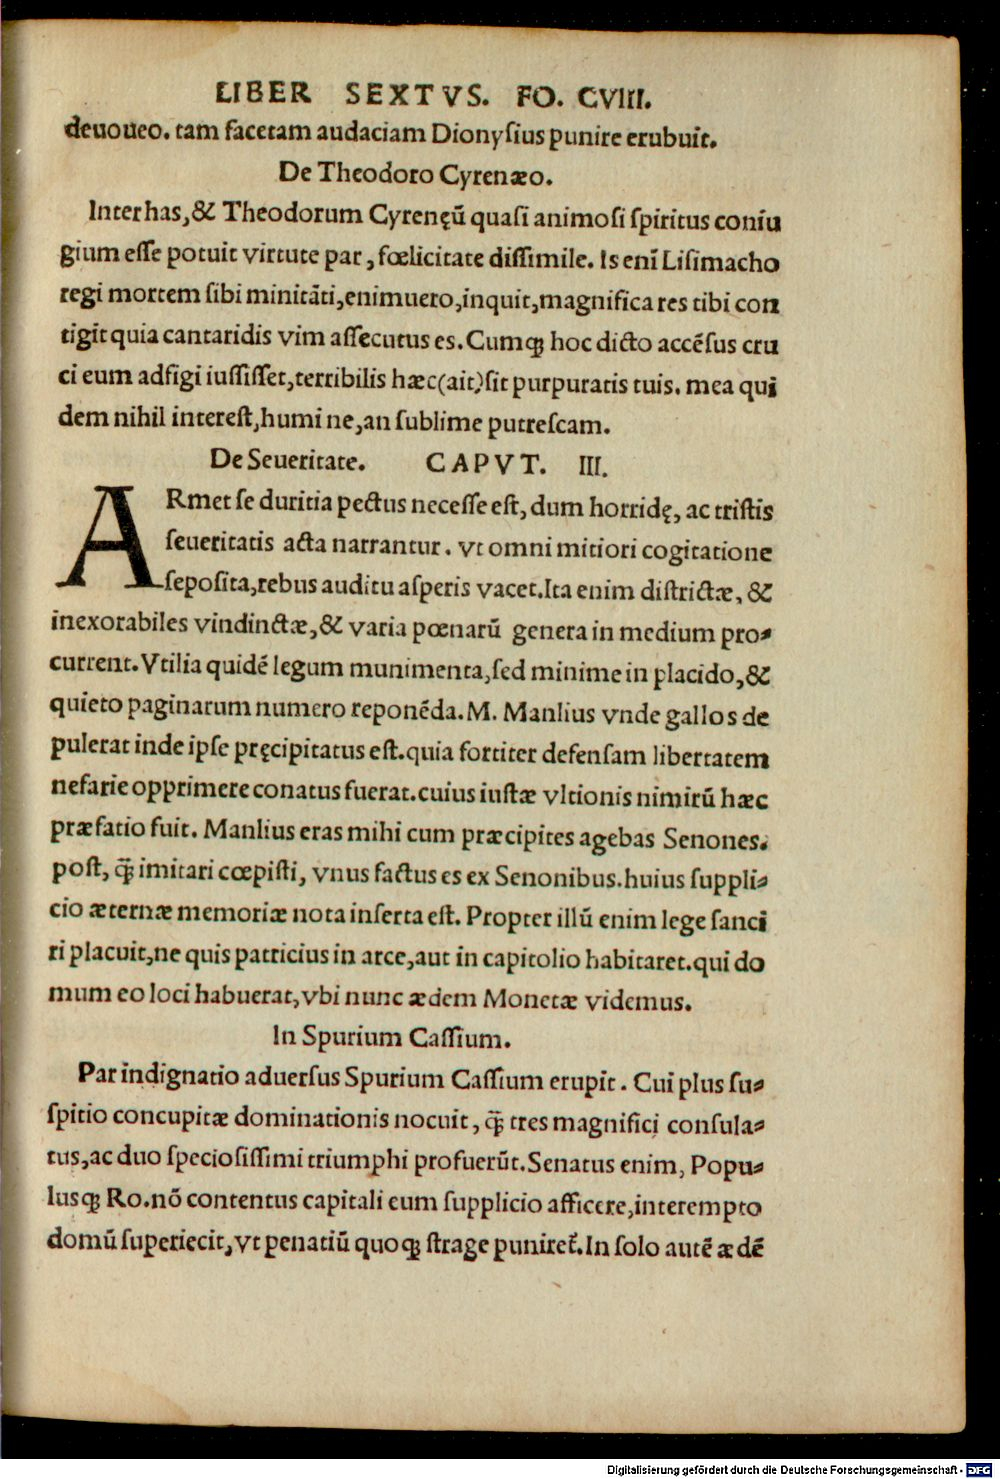 LIBER SEXTVS. FO. CVIII.
deuoueo. tam facetam audaciam Dionyſius punire erubuit.
De Theodoro Cyrenæo.
Inter has, & Theodorum Cyrenęū quasi animoſi ſpiritus coniu
gium eſſe potuit virtute par, fœlicitate diſſimile. Is enī Liſimacho
regi mortem ſibi minitāti, enimuero, inquit, magnifica res tibi con
tigit quia cantaridis vim aſſecutus es. Cumqꝫ hoc dicto accēſus cru
ci eum adfigi iuſſiſſet, terribilis hæc (ait) ſit purpuratis tuis. mea qui
dem nihil intereſt, humi ne, an ſublime putreſcam.
De Seueritate. CAPVT. III.
ARmet ſe duritia pectus neceſſe eſt, dum horridę, ac triſtis
ſeueritatis acta narrantur. vt omni mitiori cogitatione
ſepoſita, rebus auditu aſperis vacet. Ita enim diſtrictæ, &
inexorabiles vindinctæ, & varia pœnarū genera in medium pro⸗
current. Vtilia quidē legum munimenta, ſed minime in placido, &
quieto paginarum numero reponēda. M. Manlius vnde gallos de
pulerat inde ipſe pręcipitatus eſt. quia fortiter defenſam libertatem
nefarie opprimere conatus fuerat. cuius iuſtæ vltionis nimirū hæc
præfatio fuit. Manlius eras mihi cum præcipites agebas Senones.
poſt, q̄ꝫ imitari cœpiſti, vnus factus es ex Senonibus. huius ſuppli⸗
cio æternæ memoriæ nota inſerta eſt. Propter illū enim lege ſanci
ri placuit, ne quis patricius in arce, aut in capitolio habitaret. qui do
mum eo loci habuerat, vbi nunc ædem Monetæ videmus.
In Spurium Caſſium.
Par indignatio aduerſus Spurium Caſſium erupit. Cui plus ſu⸗
ſpitio concupitæ dominationis nocuit, q̄ꝫ tres magnifici conſula⸗
tus, ac duo ſpecioſiſſimi triumphi profuerūt. Senatus enim, Popu⸗
luſqꝫ Ro. nō contentus capitali eum ſupplicio afficere, interempto
domū ſuperiecit, vt penatiū quoqꝫ ſtrage puniret̃. In ſolo autē ædē
Digitalisierung gefördert durch die Deutsche Forschungsgemeinschaft - DFG